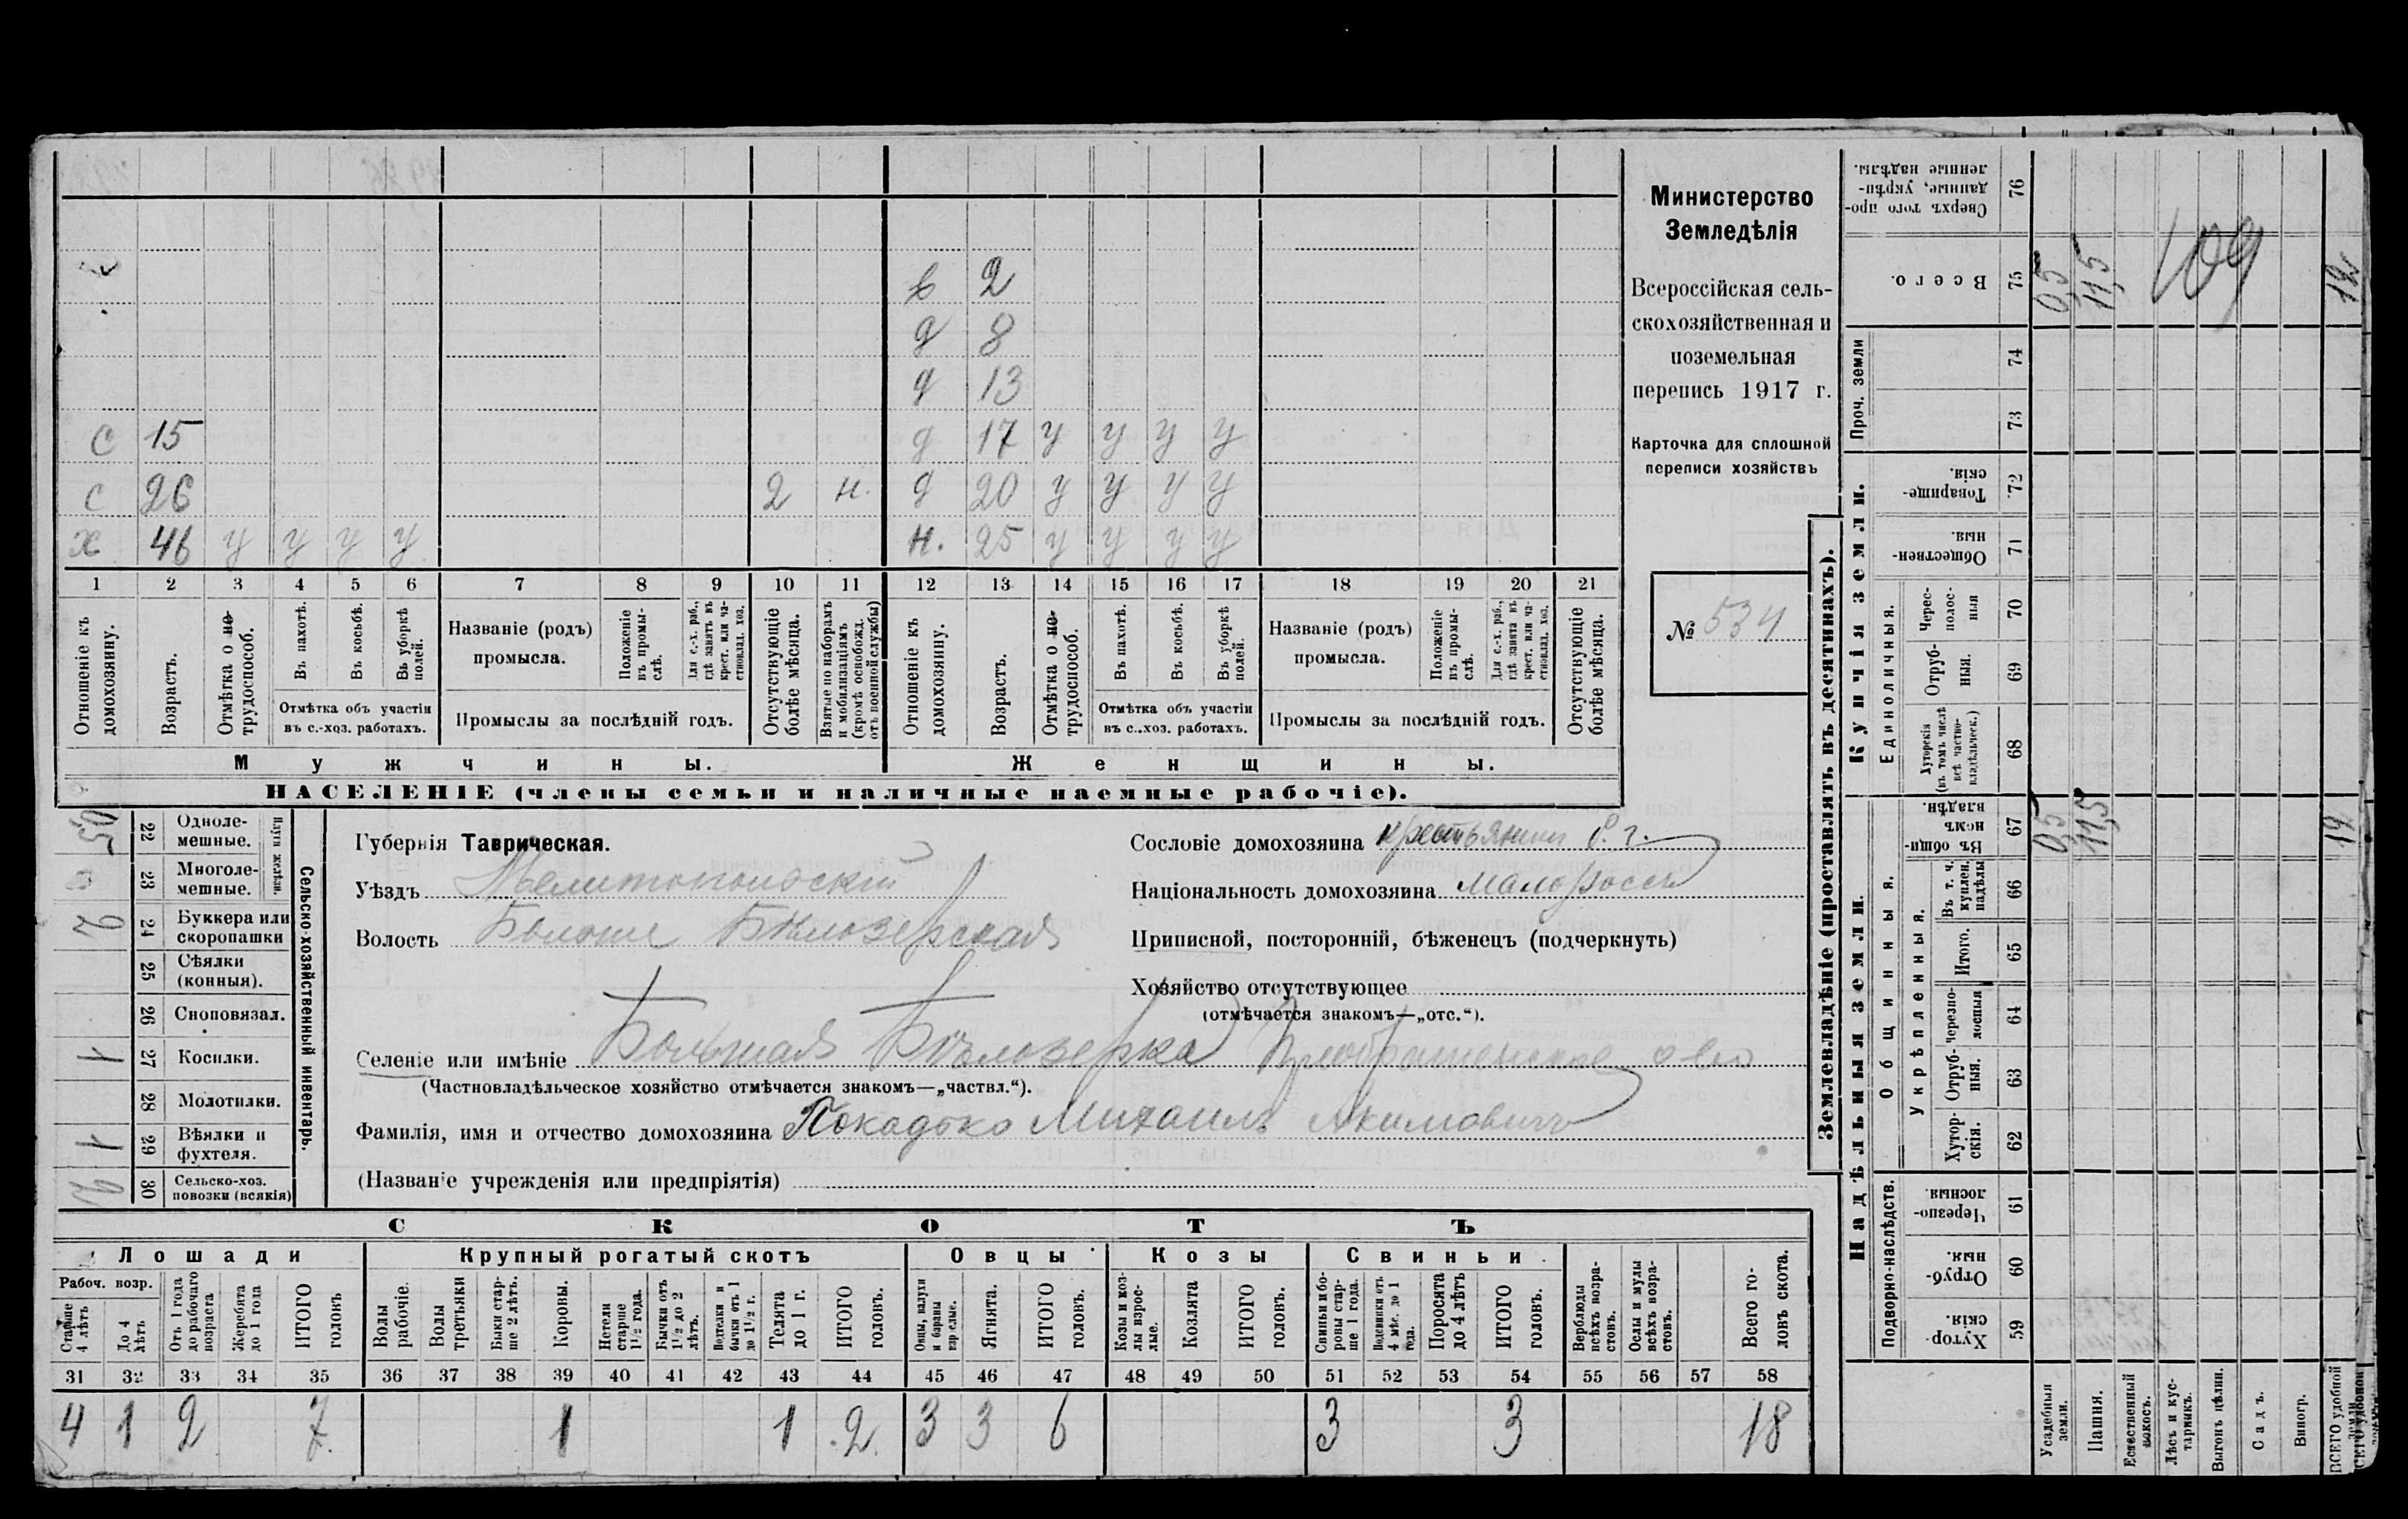 в 2
д 8
д 13
с 15 д 17 у у у у
с 26 2 н. д 20 у у у у
х 46 у у у у н. 25 у у у у
1 2 3 4 5 6 7 8 9 10 11 12 13 14 15 16 17 18 19 20 21
Отношеніе къ домохозяину.
Возрастъ.
Отмѣтка о не-трудоспособ.
Въ пахотѣ.
Въ косьбѣ.
Въ уборкѣ полей.
Отмѣтка объ участіи въ с.-хоз. работахъ.
Названіе (родъ) промысла.
Положеніе въ промыслѣ.
Для с.-х. раб., гдѣ занятъ въ крест. или частновлад. хоз.
Промыслы за послѣдній годъ.
Отсутствующіе болѣе мѣсяца.
Взятые по наборамъ и мобилизаціямъ (кромѣ освобожд. отъ военной службы)
Отношеніе къ домохозяину.
Возрастъ.
Отмѣтка о не-трудоспособ.
Въ пахотѣ.
Въ косьбѣ.
Въ уборкѣ полей.
Отмѣтка объ участіи въ с.-хоз. работахъ.
Названіе (родъ) промысла.
Положеніе въ промыслѣ.
Для с.-х. раб., гдѣ занята въ крест. или частновлад. хоз.
Промыслы за послѣдній годъ.
Отсутствующіе болѣе мѣсяца.
Мужчины. Женщины.
НАСЕЛЕНІЕ (члены семьи и наличные наемные рабочіе).
Министерство
Земледѣлія
Всероссійская сель-
скохозяйственная и
поземельная
перепись 1917 г.
Карточка для сплошной
переписи хозяйствъ
№ 534
Сельско-хозяйственный инвентарь.
Плуги желѣзн.
22 Одноле-мешные.
23 Многоле-мешные.
2 24 Буккера или скоропашки
25 Сѣялки (конныя).
26 Сноповязал.
1 27 Косилки.
28 Молотилки.
1 29 Вѣялки и фухтеля.
30 Сельско-хоз. повозки (всякія)
Губернія Таврическая.
Уѣздъ Мелитопольскій
Волость Больше Бѣлозерская
Сословіе домохозяина крестьянин
Національность домохозяина малороссъ
Приписной, посторонній, бѣженецъ (подчеркнуть)
Хозяйство отсутствующее
(отмѣчается знакомъ—„отс.“).
Селеніе или имѣніе Большая Бѣлозерка Преображенское
(Частновладѣльческое хозяйство отмѣчается знакомъ—„частвл.“).
Фамилія, имя и отчество домохозяина Михаилъ Акимовичъ
(Названіе учрежденія или предпріятія)
СКОТЪ
Лошади Крупный рогатый скотъ Овцы Козы Свиньи
Рабоч. возр.
Старше 4 лѣтъ
До 4 лѣтъ
Отъ 1 года до рабочаго возраста
Жеребята до 1 года
ИТОГО головъ
Волы рабочіе.
Волы третьяки
Быки стар-ше 2 лѣтъ.
Коровы.
Нетели старше 1 1/2 года.
Бычки отъ 1 1/2 до 2 лѣтъ.
Подтелки и бычки отъ 1 до 1 1/2 г.
Телята до 1 г.
ИТОГО головъ.
Овцы, валухи и бараны взрослые.
Ягнята.
ИТОГО головъ.
Козы и коз-лы взрос-лые.
Козлята
ИТОГО головъ.
Свиньи и бо-ровы стар-ше 1 года.
Подсвинки отъ 4 мѣс. до 1 года.
Поросята до 4 лѣтъ
ИТОГО головъ.
Верблюды всѣхъ возра-стовъ.
Ослы и мулы всѣхъ возра-стовъ.
Всего го-ловъ скота.
31 32 33 34 35 36 37 38 39 40 41 42 43 44 45 46 47 48 49 50 51 52 53 54 55 56 57 58
4 1 2 7 1 1 2 3 3 6 3 3 18
Землевладѣніе (проставлять въ десятинахъ).
Купчія земли.
Проч. земли
Единоличныя.
Надѣльныя земли.
Общинныя.
Укрѣпленныя.
Подворно-наслѣдств.
76 Сверхъ того про-данные, укрѣп-ленные надѣлы.
75 Всего. 0,5 11,5 109 12
74
73
72 Товарище-скія.
71 Обществен-ныя.
70 Черес-полос-ныя
69 Отруб-ныя.
68 Хуторскія (въ томъ числѣ всѣ частно-владѣльческ.)
67 Въ общин-номъ владѣн. 0,5 11,5 12
66 Въ т. ч. куплен. надѣлы
65 Итого.
64 Черезпо-лосныя
63 Отруб-ныя.
62 Хутор-скія.
61 Черезпо-лосныя.
60 Отруб-ныя.
59 Хутор-скія.
Усадебныя земли.
Пашня.
Естественный покосъ.
Лѣсъ и кус-тарникъ.
Выгонъ цѣлин.
Садъ.
Виногр.
ВСЕГО удобной земли